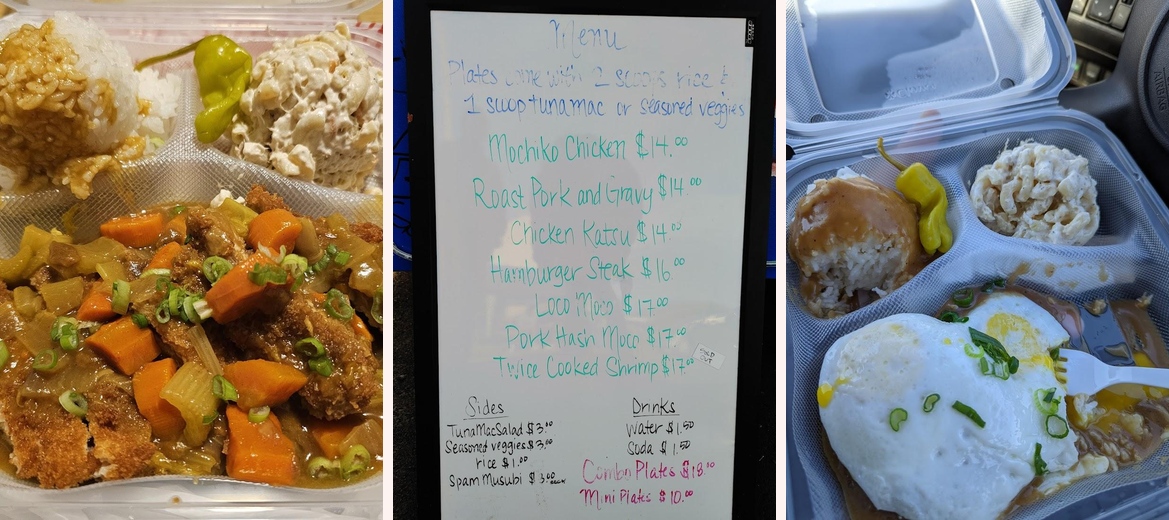 Menu
Plates come with 2 scoops rice &
1 scoop tuna mac or seasoned veggies
Mochiko Chicken $14.00
Roast Pork and Gravy $14.00
Chicken Katsu $14.00
Hamburger Steak $16.00
Loco Moco $17.00
Pork Hash Moco $17.
Twice Cooked Shrimp $17.00
SOLD OUT
Sides
TunaMacSalad $3.00
Seasoned veggies $3.00
rice $1.00
Spam Musubi $3.00
Drinks
Water $1.50
Soda $1.50
Combo Plates $18.00
Mini Plates $10.00